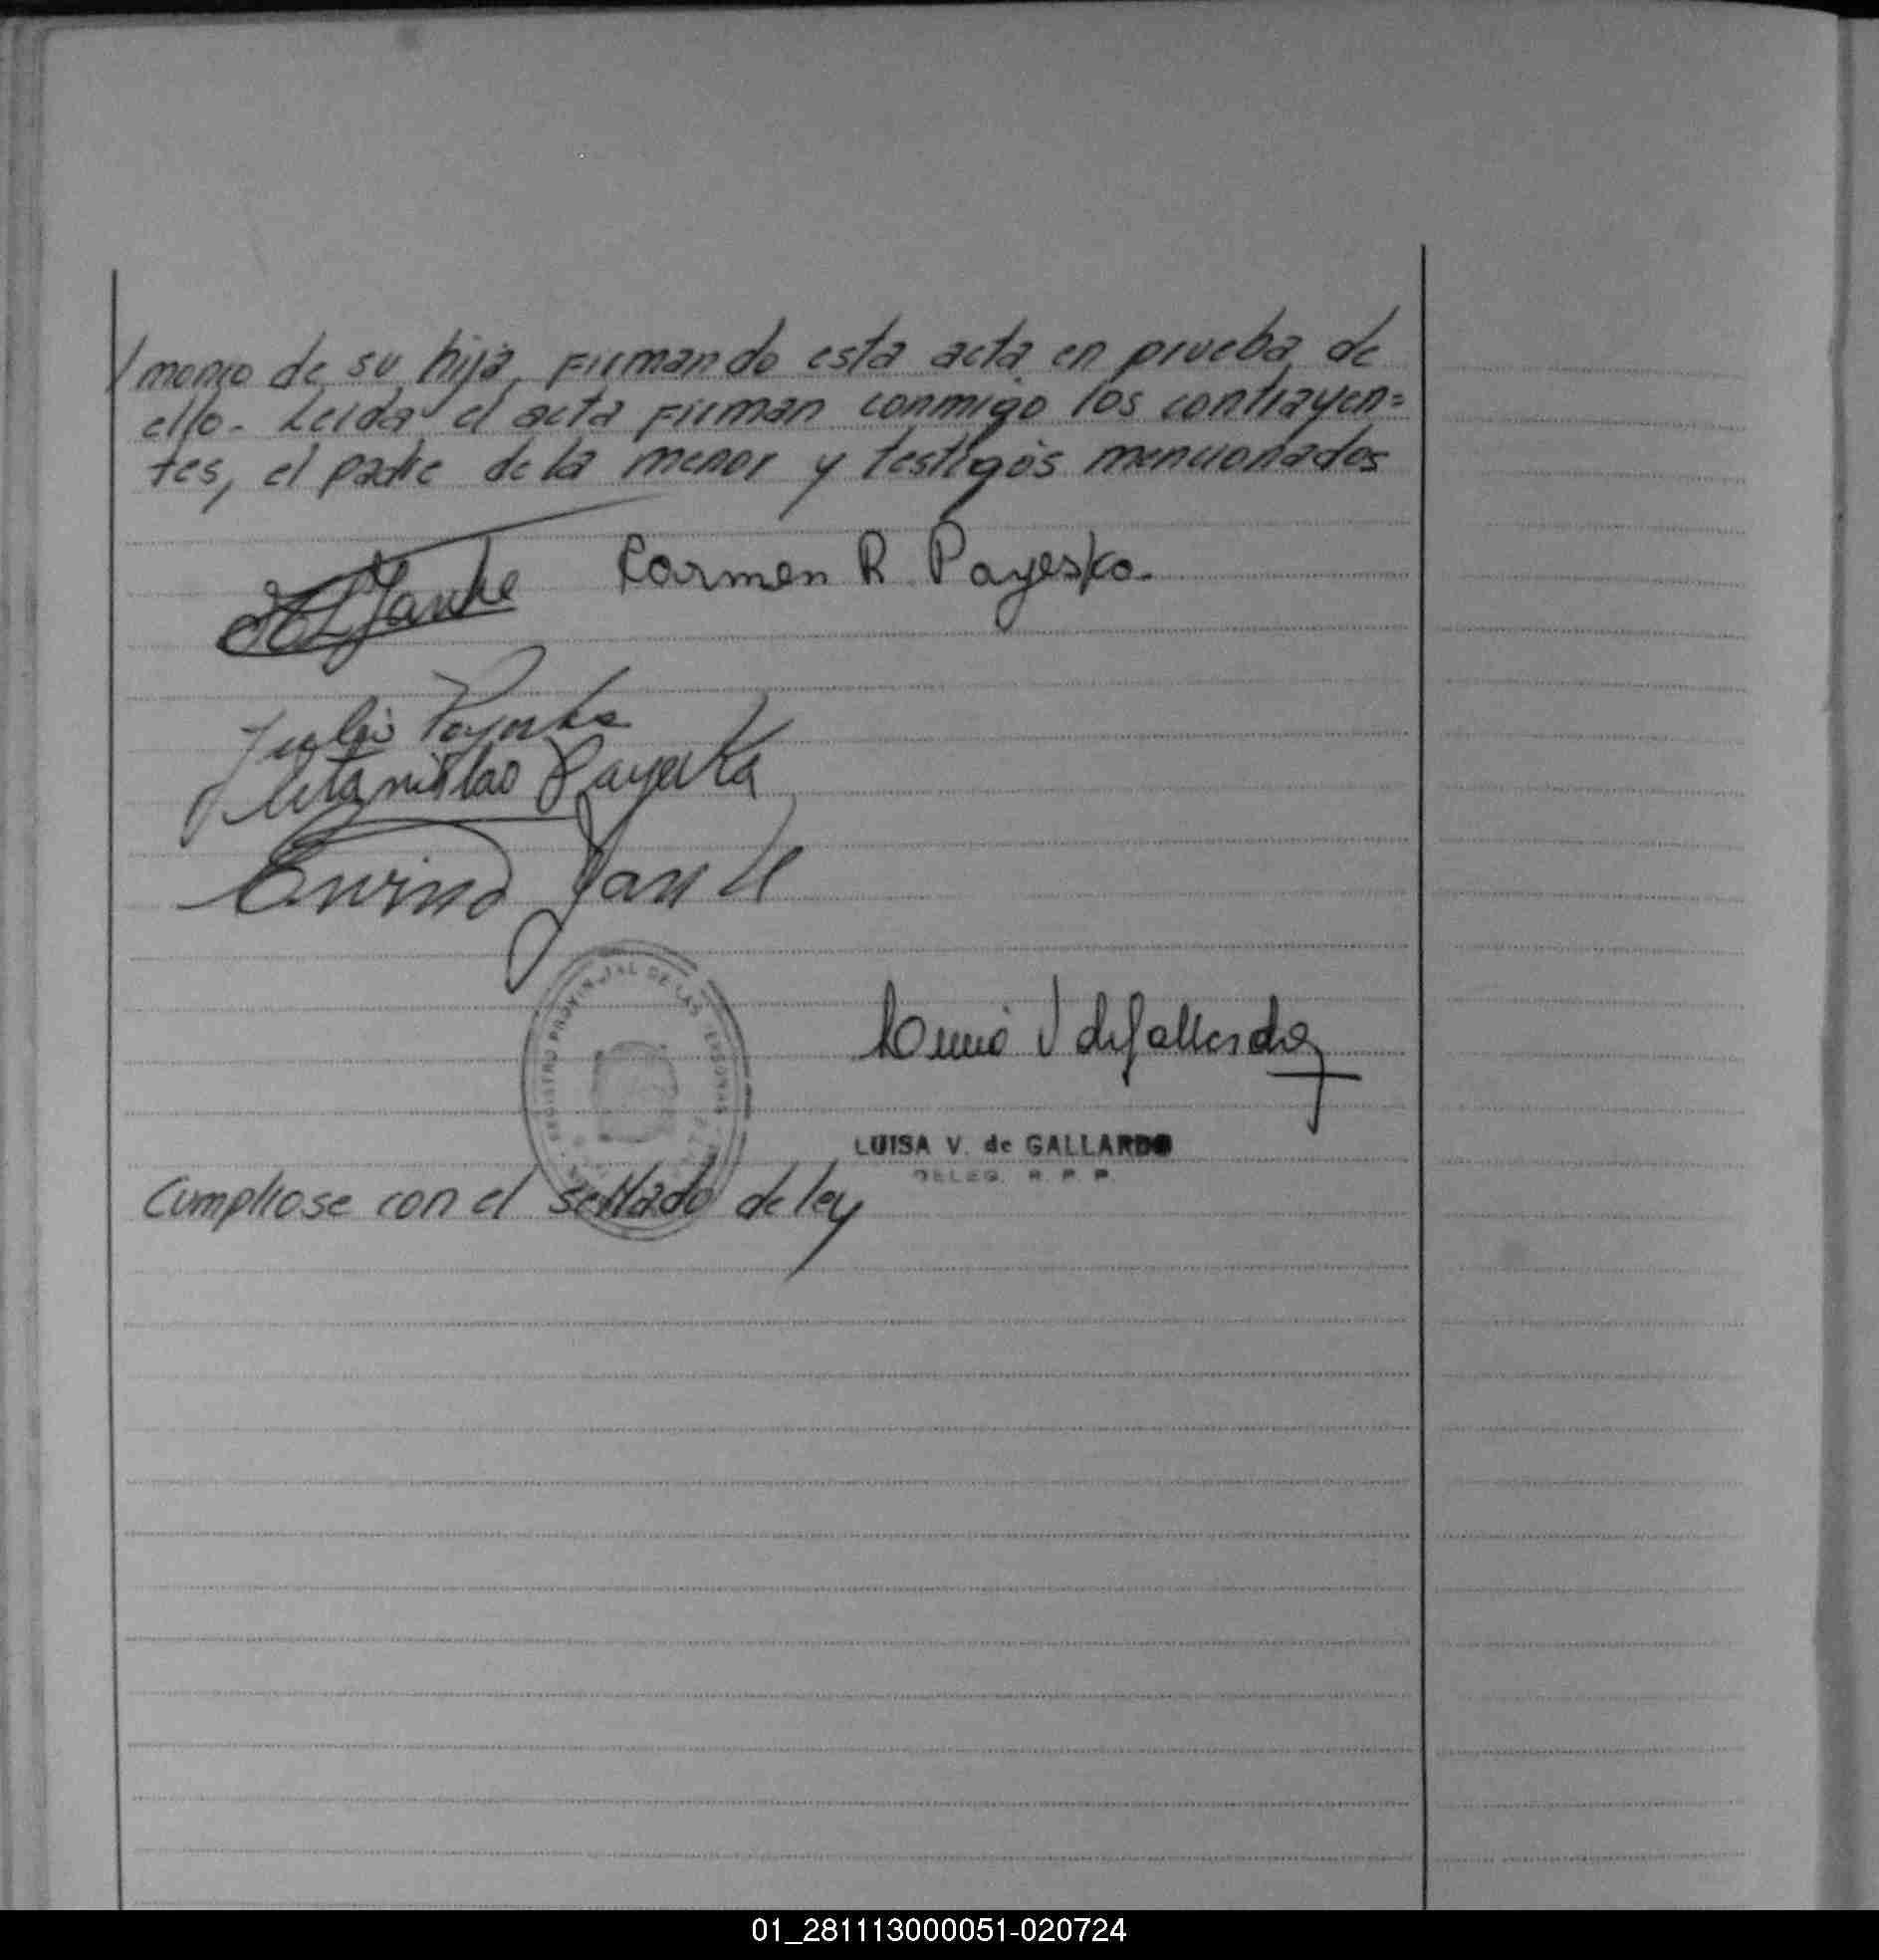 /monio de su hija, firmando esta acta en prueba de
ello. Leida el acta firman conmigo los contrayen=
tes, el padre de la menor y testigos mencionados
Janke Carmen R. Payeska.
Julio Payeska
Estanislao Payeska
Janke
REGISTRO PROVINCIAL DE LAS PERSONAS
Luisa V de Gallardo
LUISA V. de GALLARDO
DELEG. R. P. P.
Cumpliose con el sellado de ley
01_281113000051-020724